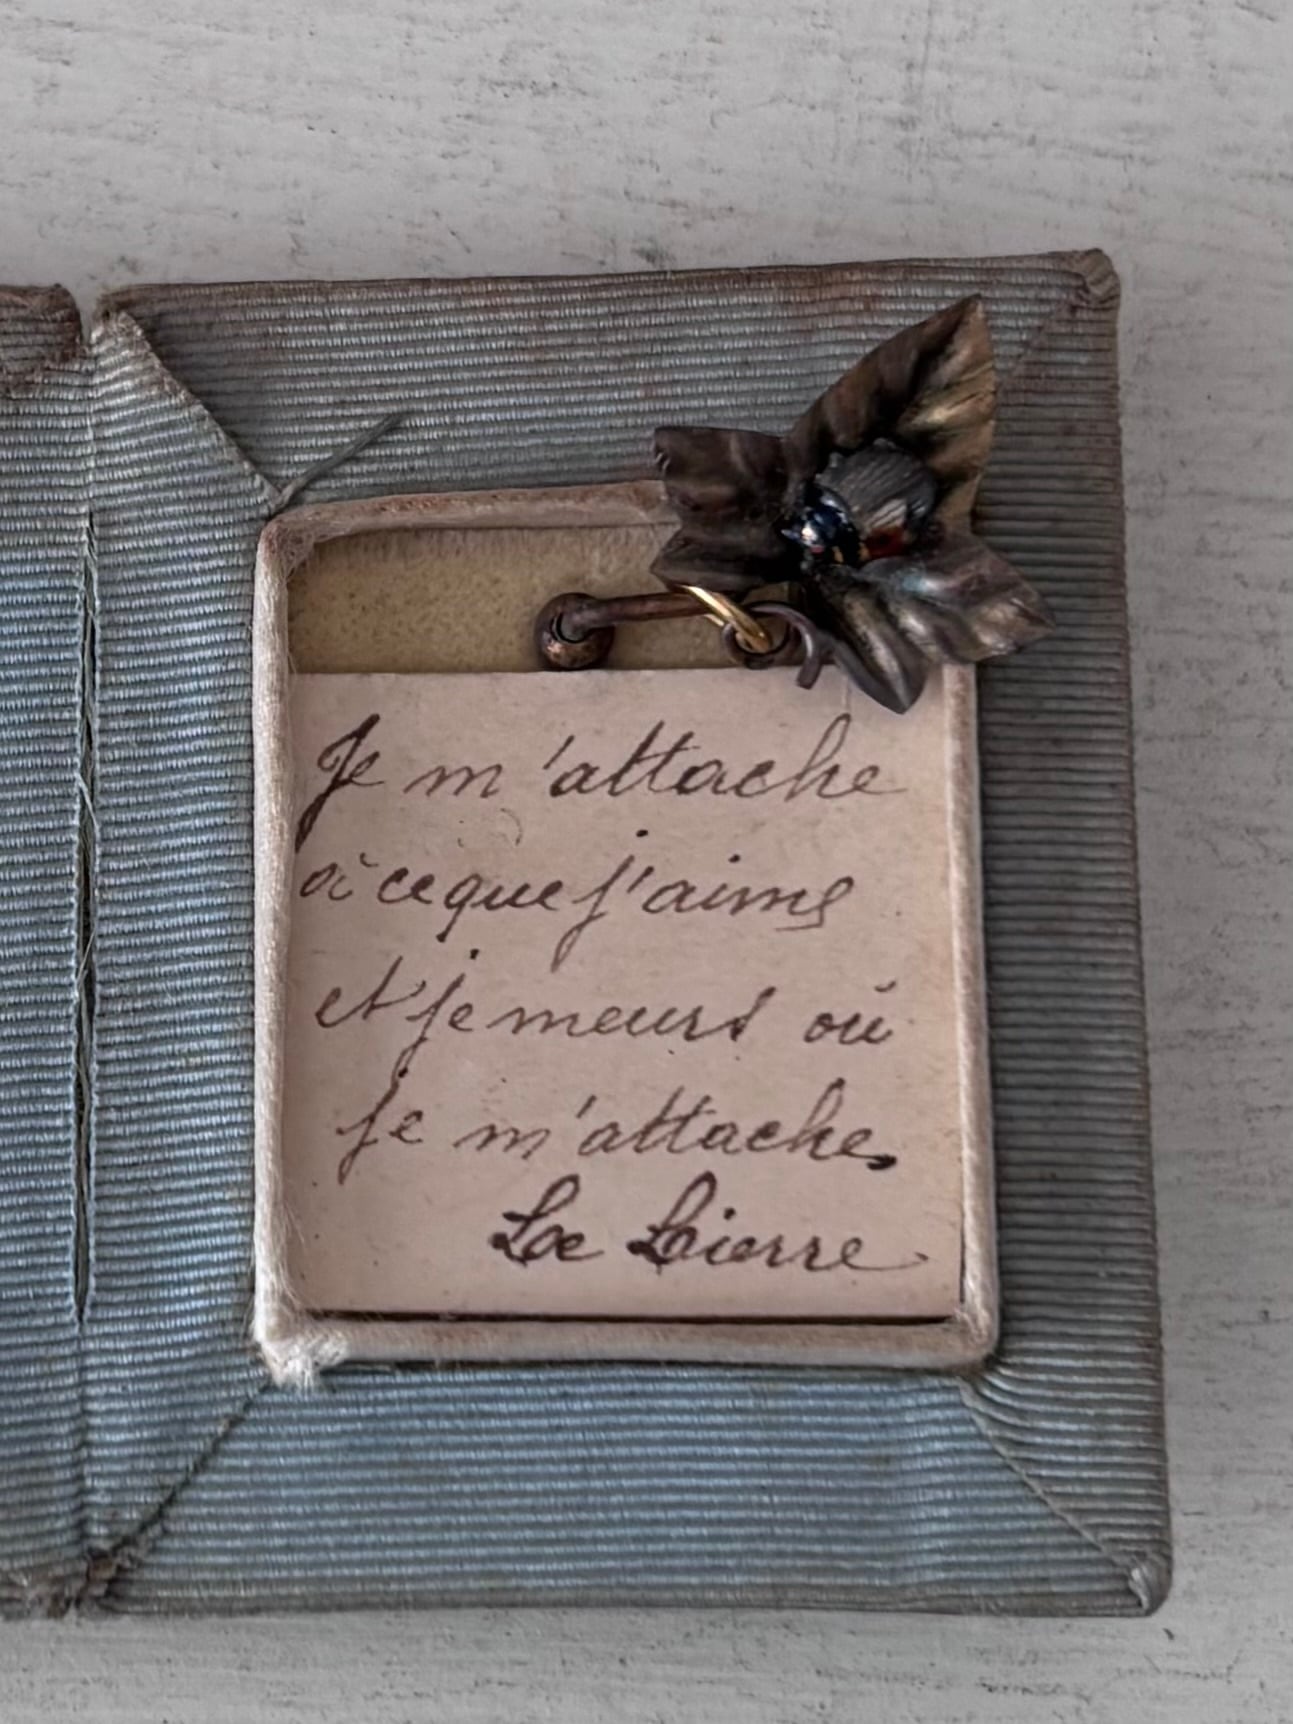 Je m'attache
à ce que j'aime
et je meurs où
je m'attache.
Le Lierre